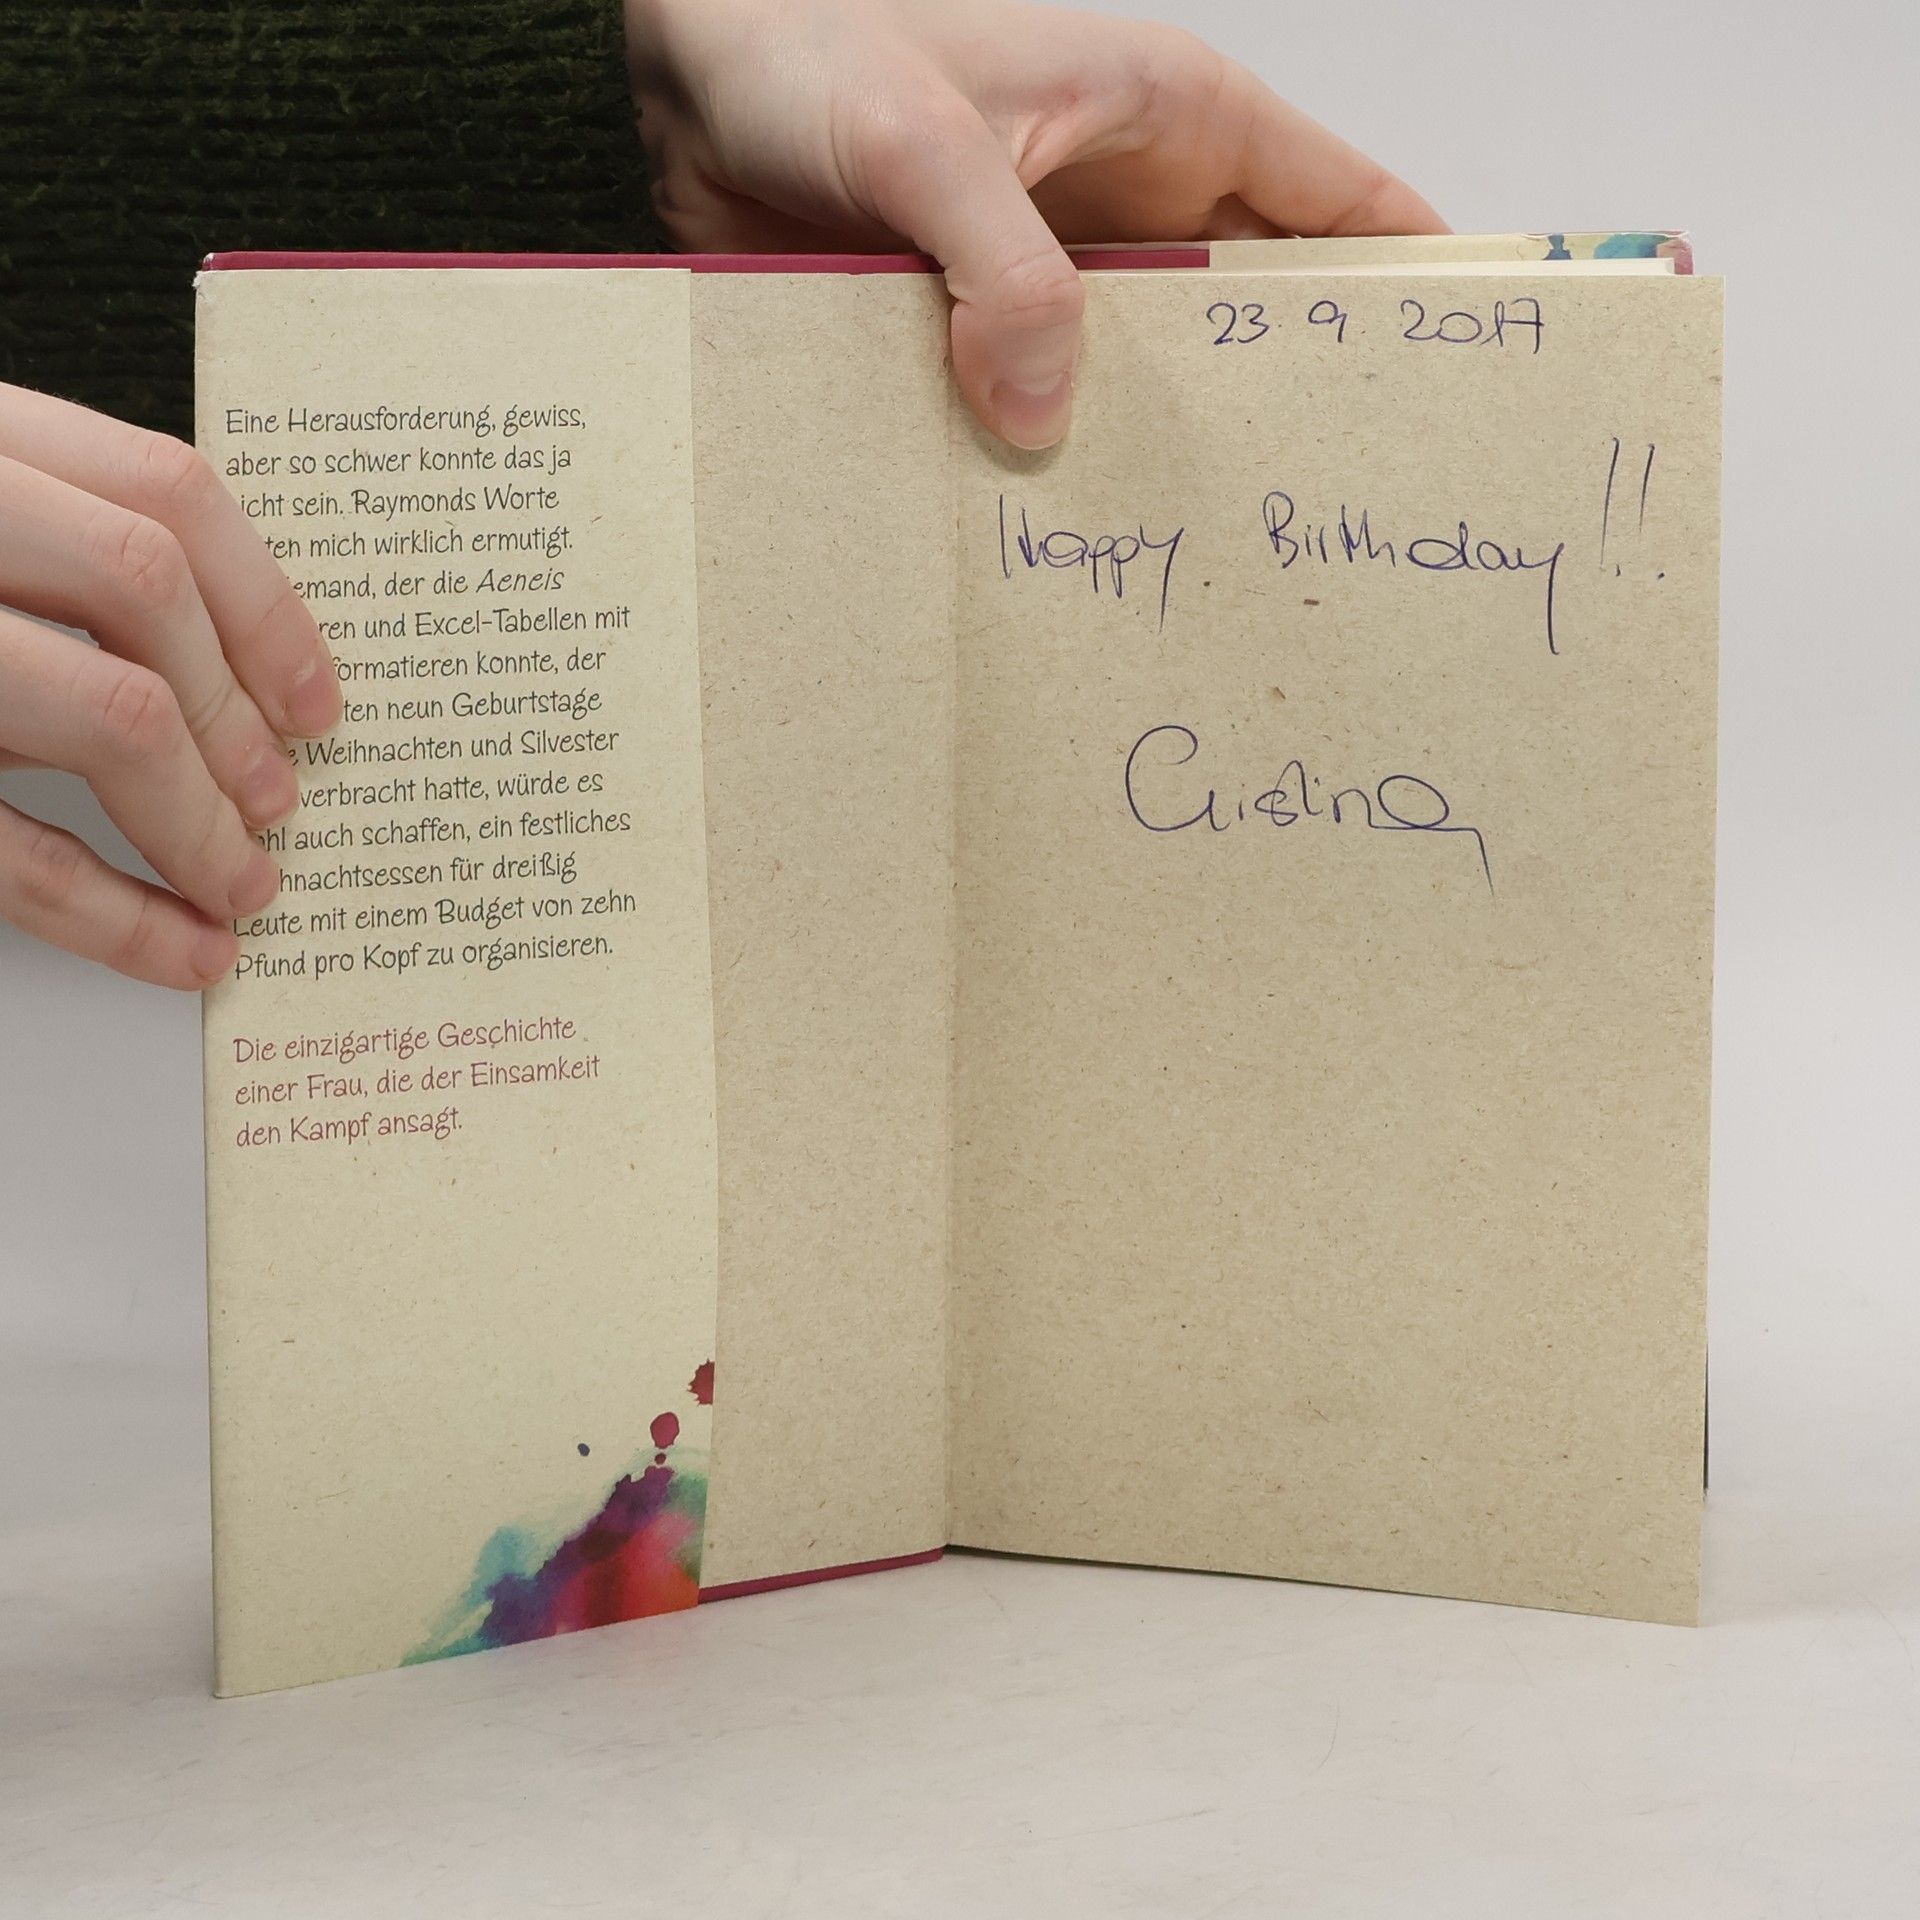 Eine Herausforderung, gewiss,
aber so schwer konnte das ja
icht sein. Raymonds Worte
ten mich wirklich ermutigt.
emand, der die Aeneis
ren und Excel-Tabellen mit
formatieren konnte, der
ten neun Geburtstage
e Weihnachten und Silvester
verbracht hatte, würde es
hl auch schaffen, ein festliches
hnachtsessen für dreißig
Leute mit einem Budget von zehn
Pfund pro Kopf zu organisieren.
Die einzigartige Geschichte
einer Frau, die der Einsamkeit
den Kampf ansagt.
23. 9. 2017
Happy Birthday!!
Cristina